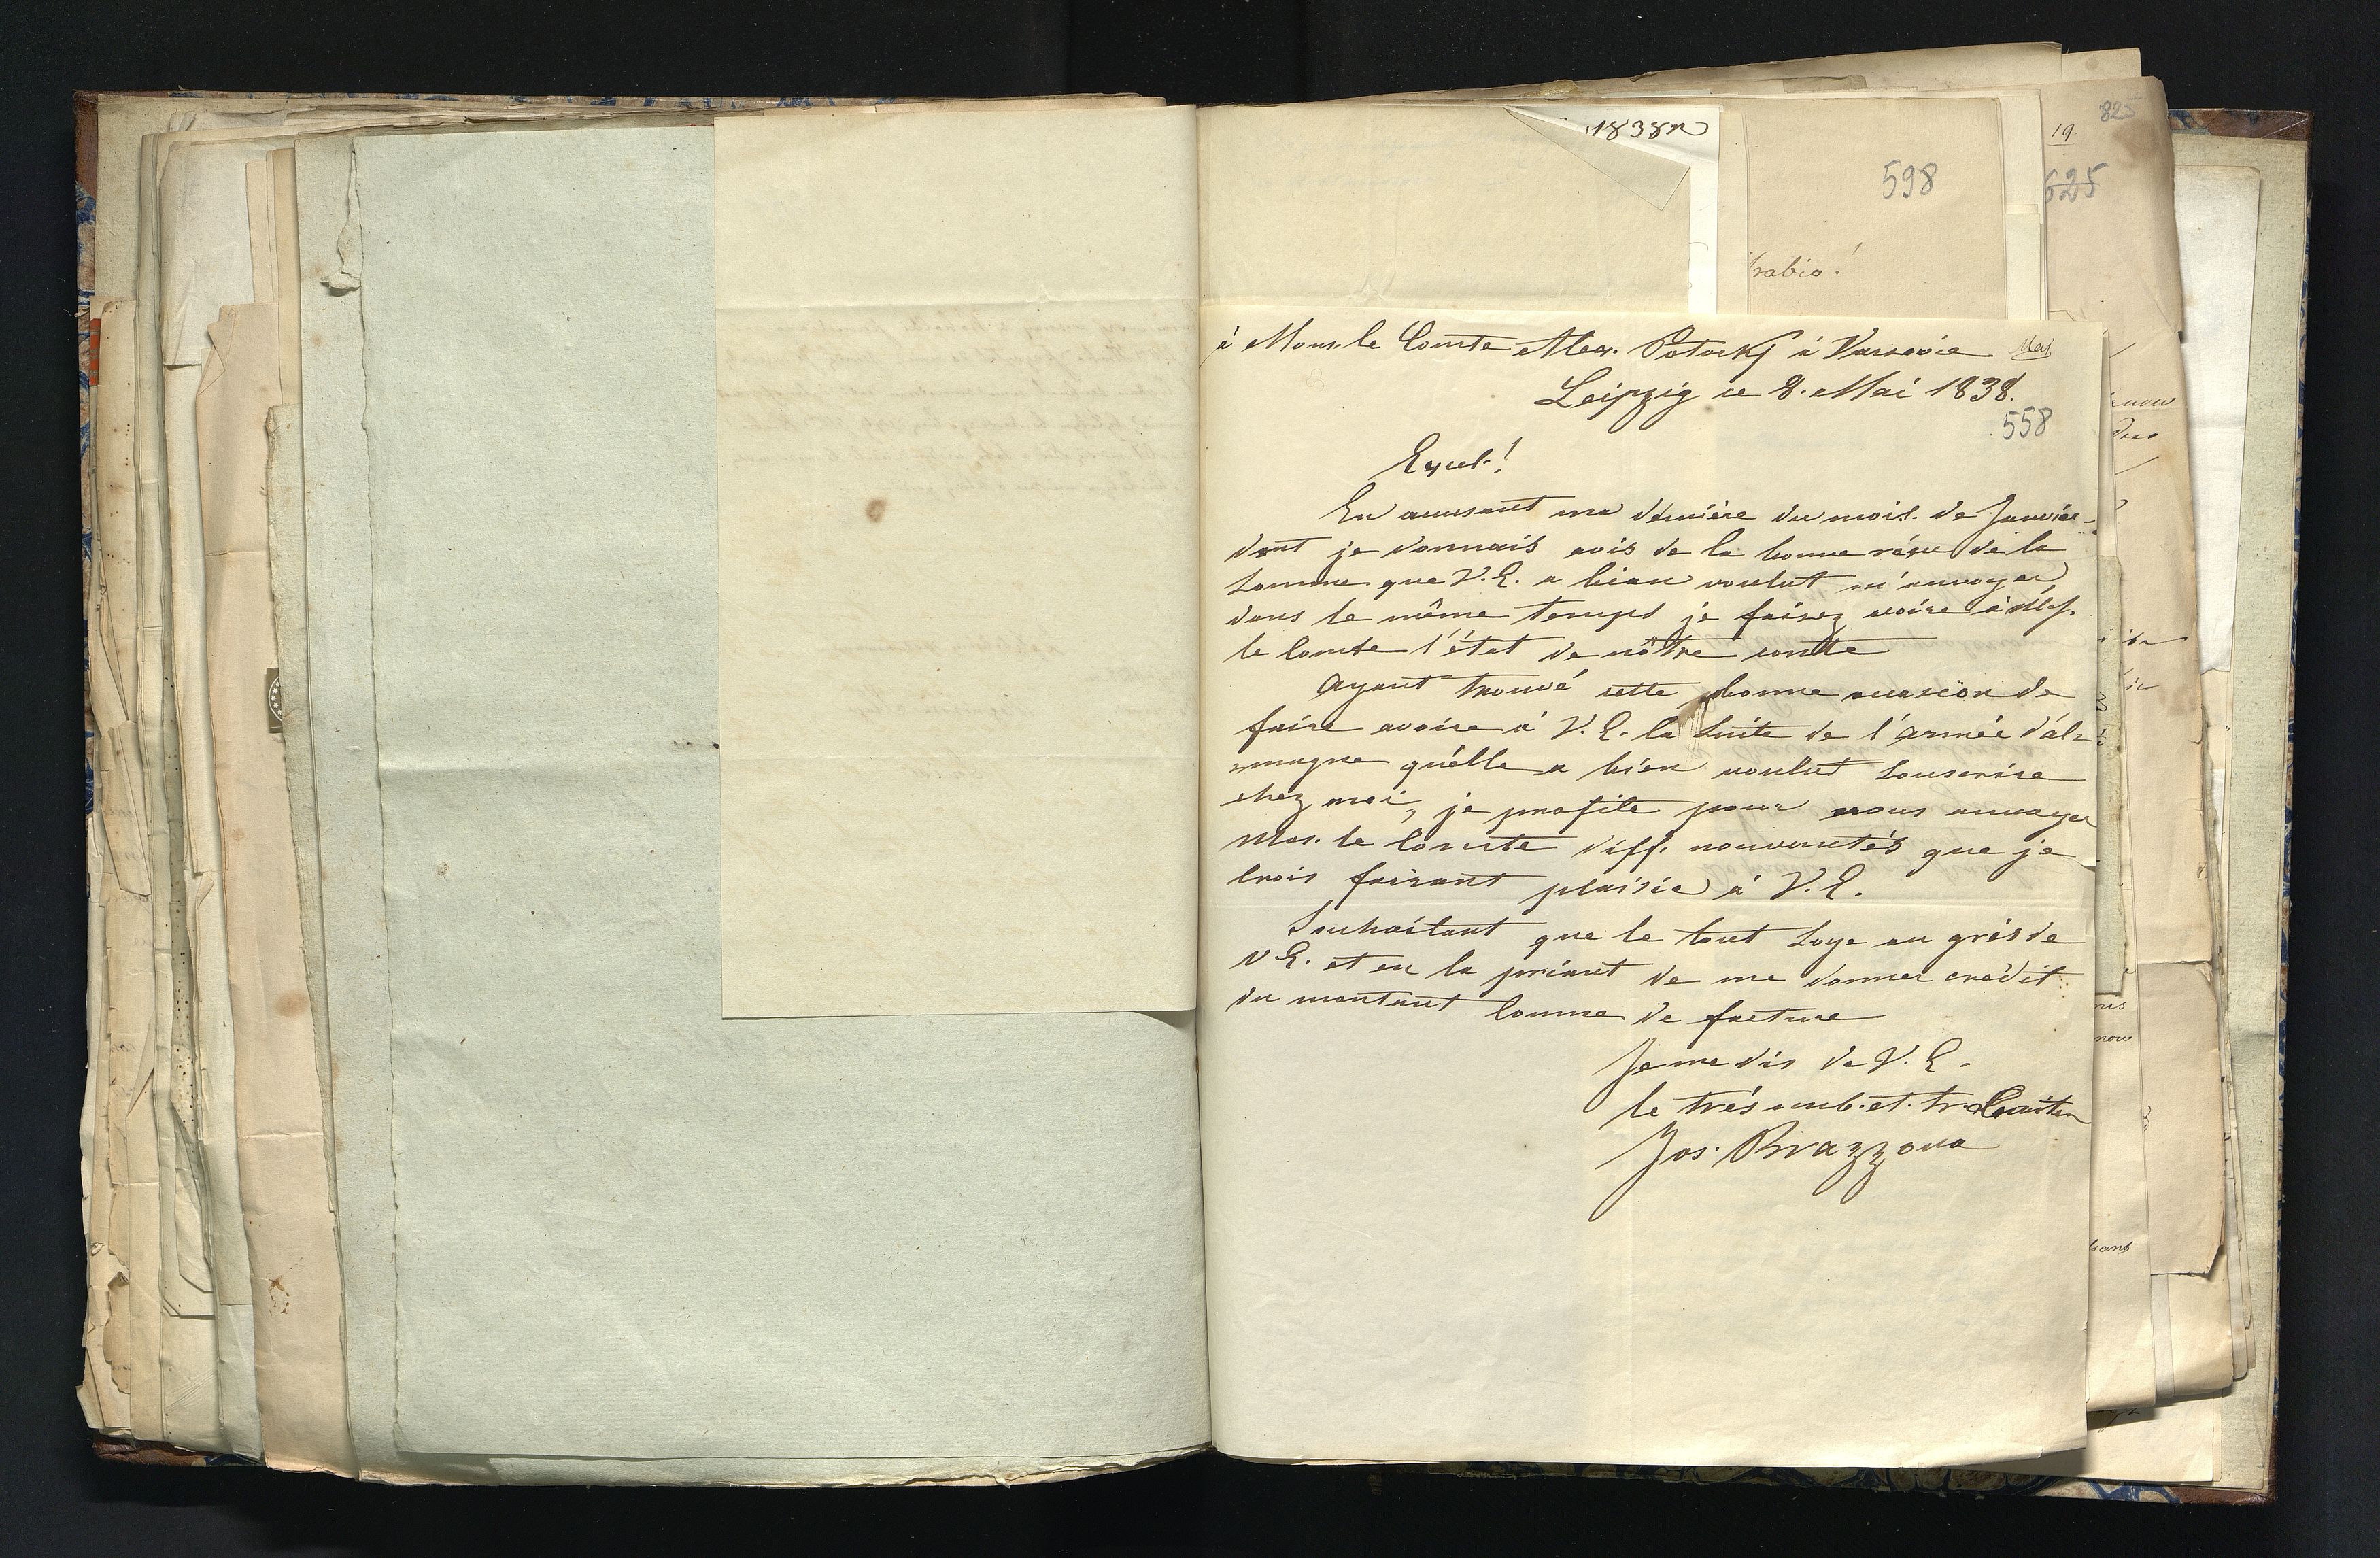 1838
598
19.
825
625
à Mons. le Comte Alex. Potockj à Varsovie Mai
Leipzig ce 8. Mai 1838.
558
Excel.!
En accusant ma dernière du mois de Janvier
dont je donnais avis de la bonne réçu de la
Somme que V. E. a bien voulut m'anvoyer,
dans le même temps je faisez avoire à
le Comte l'état de nôtre contte
Ayant trouvé cette bonne occasion de
faire avoire à V. E. la Suite de l'Armée d'al-
magne qu'élle a bien voulut Souscrire
chez moi, je profite pour vous anvoyer
Mos. le Comte diff. nouveautés que je
Crois faisant plaisir à V. E.
Souhaitant que le tout Soye au grés de
V. E. et en la priant de me donner credit
du montant Comme de facture
Je me dis de V. E.
le trés umb. et. tr.
Jos. Brazzova